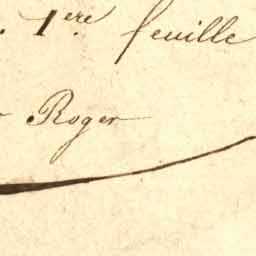 1ere feuille
Roger